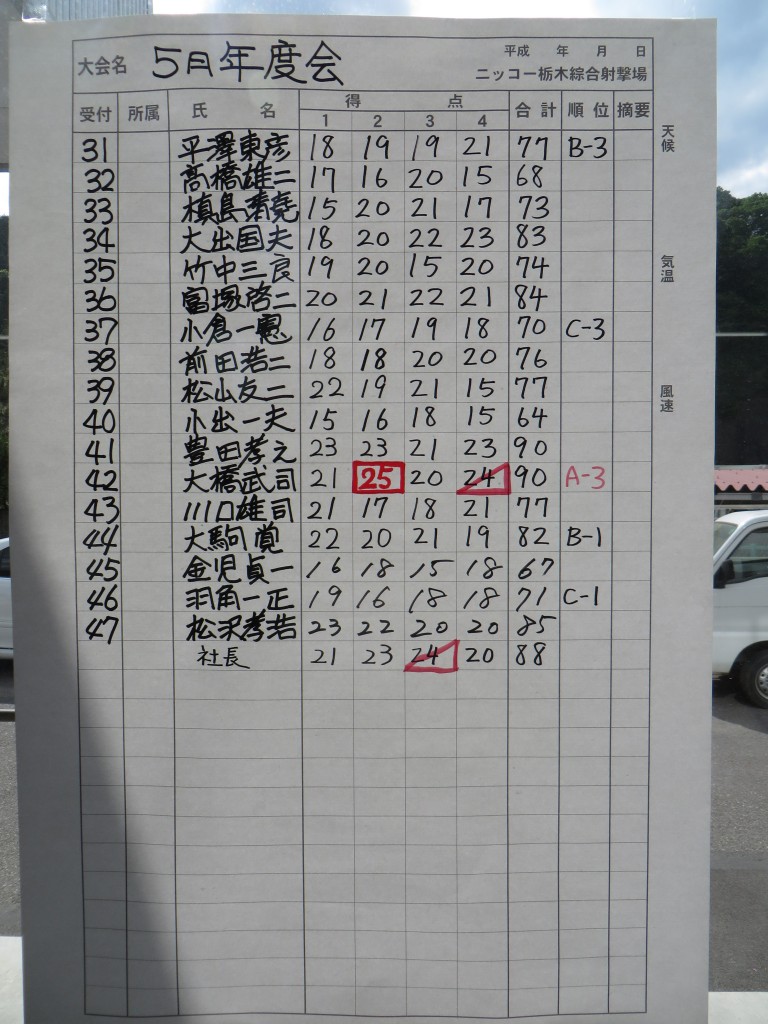 大会名 5月年度会
平成 年 月 日
ニッコー栃木綜合射撃場
受付 所属 氏 名 得 点 合計 順位 摘要
1 2 3 4
31 平澤東彦 18 19 19 21 77 B-3
32 髙橋雄二 17 16 20 15 68
33 槙島 15 20 21 17 73
34 大出国夫 18 20 22 23 83
35 竹中三良 19 20 15 20 74
36 富塚啓二 20 21 22 21 84
37 小倉一憲 16 17 19 18 70 C-3
38 前田浩二 18 18 20 20 76
39 松山友二 22 19 21 15 77
40 小出一夫 15 16 18 15 64
41 豊田孝之 23 23 21 23 90
42 大橋武司 21 25 20 24 90 A-3
43 川口雄司 21 17 18 21 77
44 大駒覚 22 20 21 19 82 B-1
45 金児貞一 16 18 15 18 67
46 羽角一正 19 16 18 18 71 C-1
47 松沢孝浩 23 22 20 20 85
社長 21 23 24 20 88
天候
気温
風速